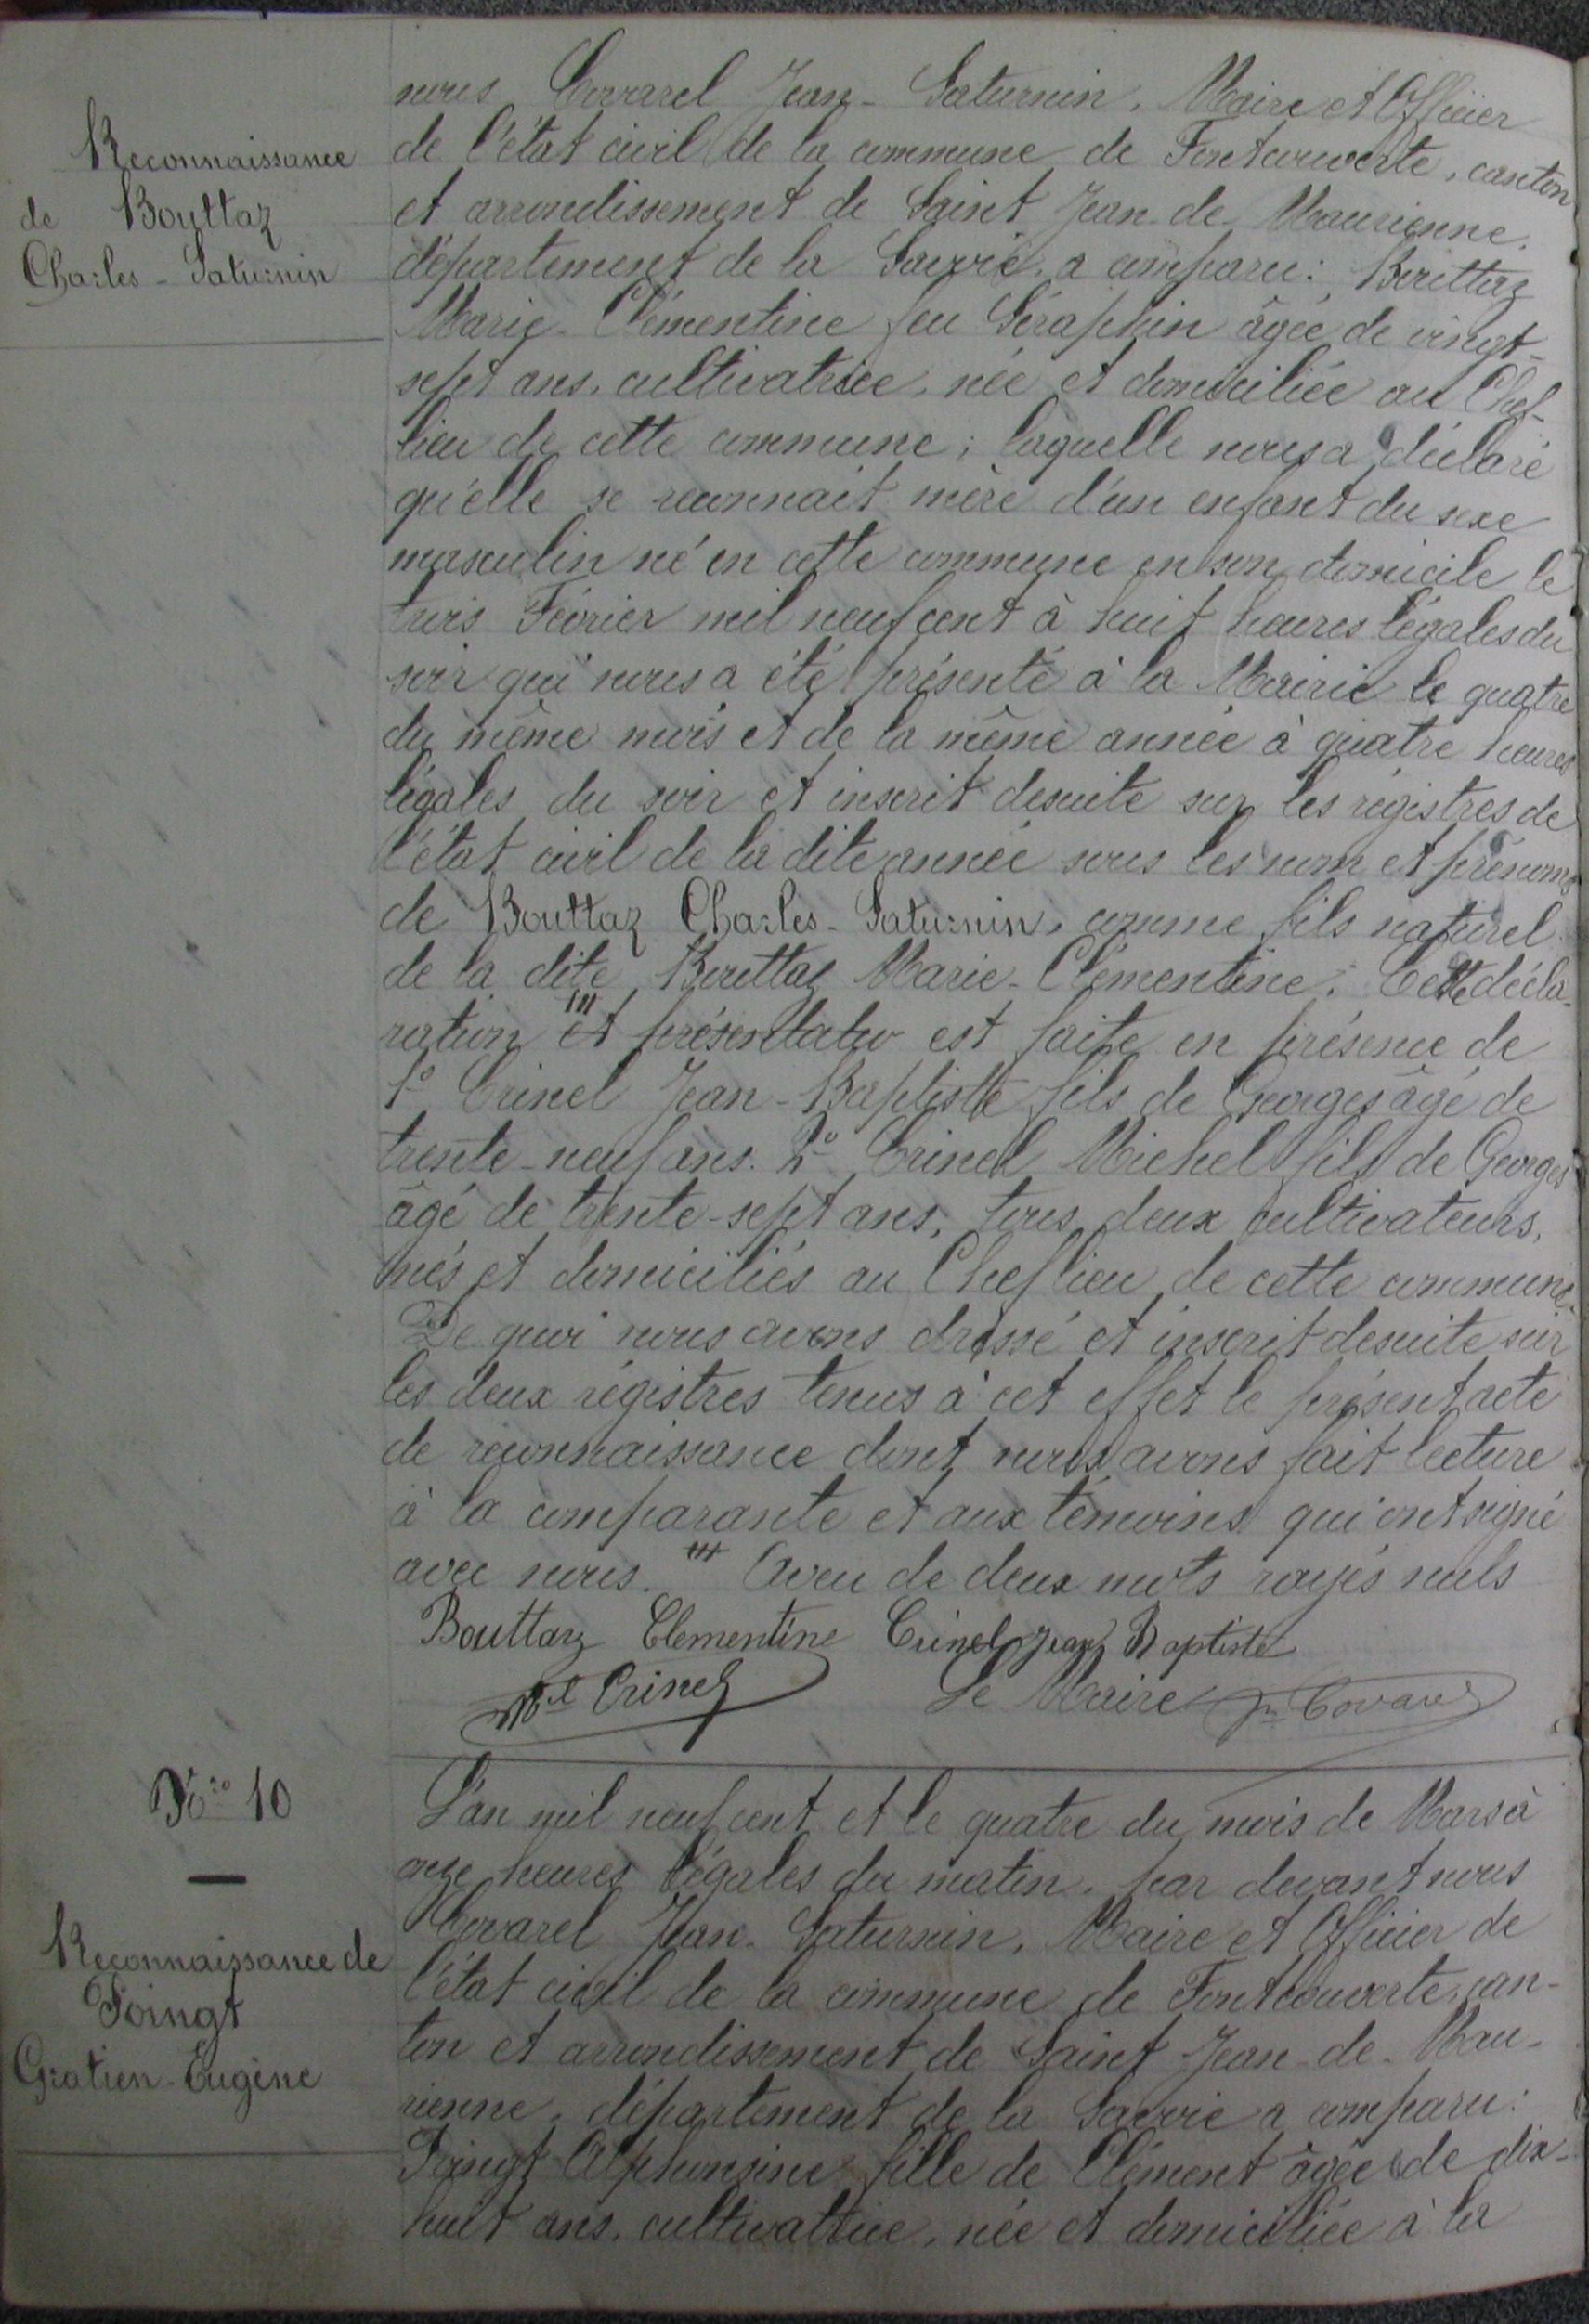 Reconnaissance
de Bouttaz
Charles-Saturnin
nous Covarel Jean-Saturnin, Maire et Officier
de l'état civil de la commune de Fontcouverte, canton
et arrondissement de Saint Jean de Maurienne,
département de la Savoie, a comparu: Bouttaz
Marie-Clémentine feu Séraphin âgée de vingt-
sept ans, cultivatrice, née et domiciliée au Chef-
lieu de cette commune; laquelle nous a déclaré
qu'elle se reconnait mère d'un enfant du sexe
masculin né en cette commune en son domicile le
trois Février mil neuf cent à huit heures légales du
soir qui nous a été présenté à la Mairie le quatre
du même mois et de la même année à quatre heures
légales du soir et inscrit desuite sur les régistres de
l'état civil de la dite année sous les nom et prénoms
de Bouttaz Charles-Saturnin, comme fils naturel
de la dite Bouttaz Marie-Clémentine. Cette décla-
ration et présentatio est faite en présence de
1° Crinel Jean-Baptiste fils de Georges âgé de
trente-neuf ans. 2° Crinel Michel fils de Georges
âgé de trente-sept ans, tous deux cultivateurs,
nés et domiciliés au Cheflieu de cette commune.
De quoi nous avons dressé et inscrit desuite sur
les deux régistres tenus à cet effet le présent acte
de reconnaissance dont nous avons fait lecture
à la comparante et aux témoins qui ont signé
avec nous. Aveu de deux mots rayés nuls
Bouttaz Clementine Crinel Jean Baptiste
Mel Crinel Le Maire Jn Covarel
Nro 10
Reconnaissance de
Poingt
Gratien-Eugène
L'an mil neuf cent et le quatre du mois de Mars à
onze heures légales du matin, par devant nous
Covarel Jean-Saturnin, Maire et Officier de
l'état civil de la commune de Fontcouverte, can-
ton et arrondissement de Saint Jean-de-Mau-
rienne, département de la Savoie a comparu:
Poingt Alphonsine fille de Clément âgée de dix-
huit ans, cultivatrice, née et domiciliée à la